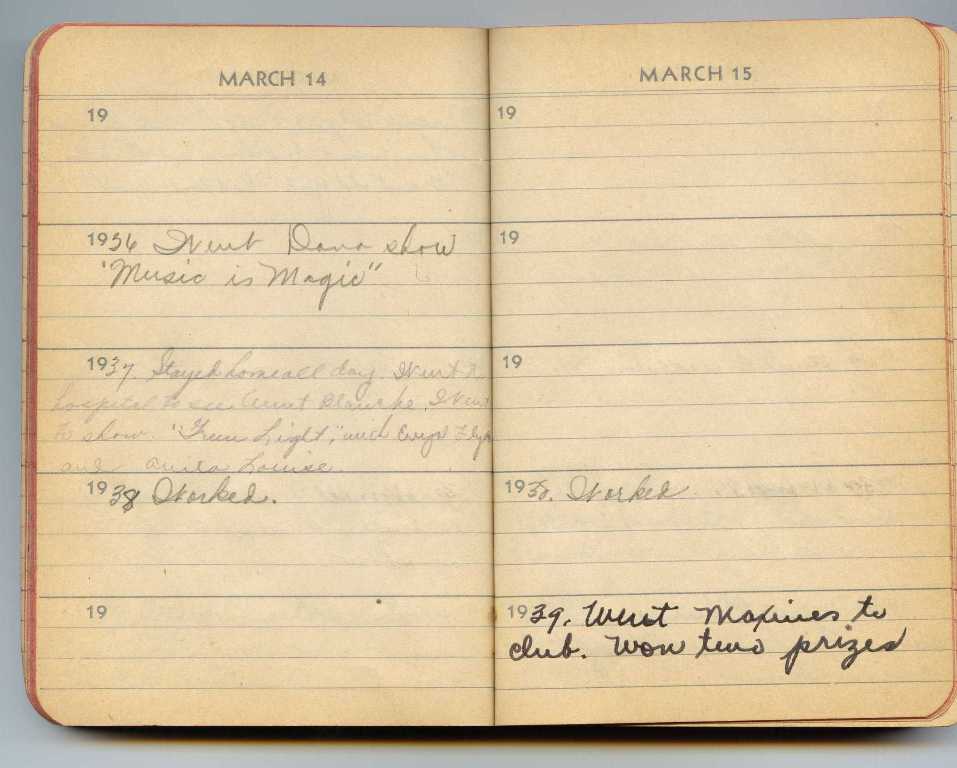 MARCH 14
19
1936 Went Dana show
"Music is Magic"
1937. Stayed home all day. Went to
hospital to see Aunt Blanche. Went
to show. "Green Light," with Errol Flynn
and Anita Louise.
1938 Worked.
19
MARCH 15
19
19
19
1938. Worked.
1939. Went Maxines to
club. Won two prizes